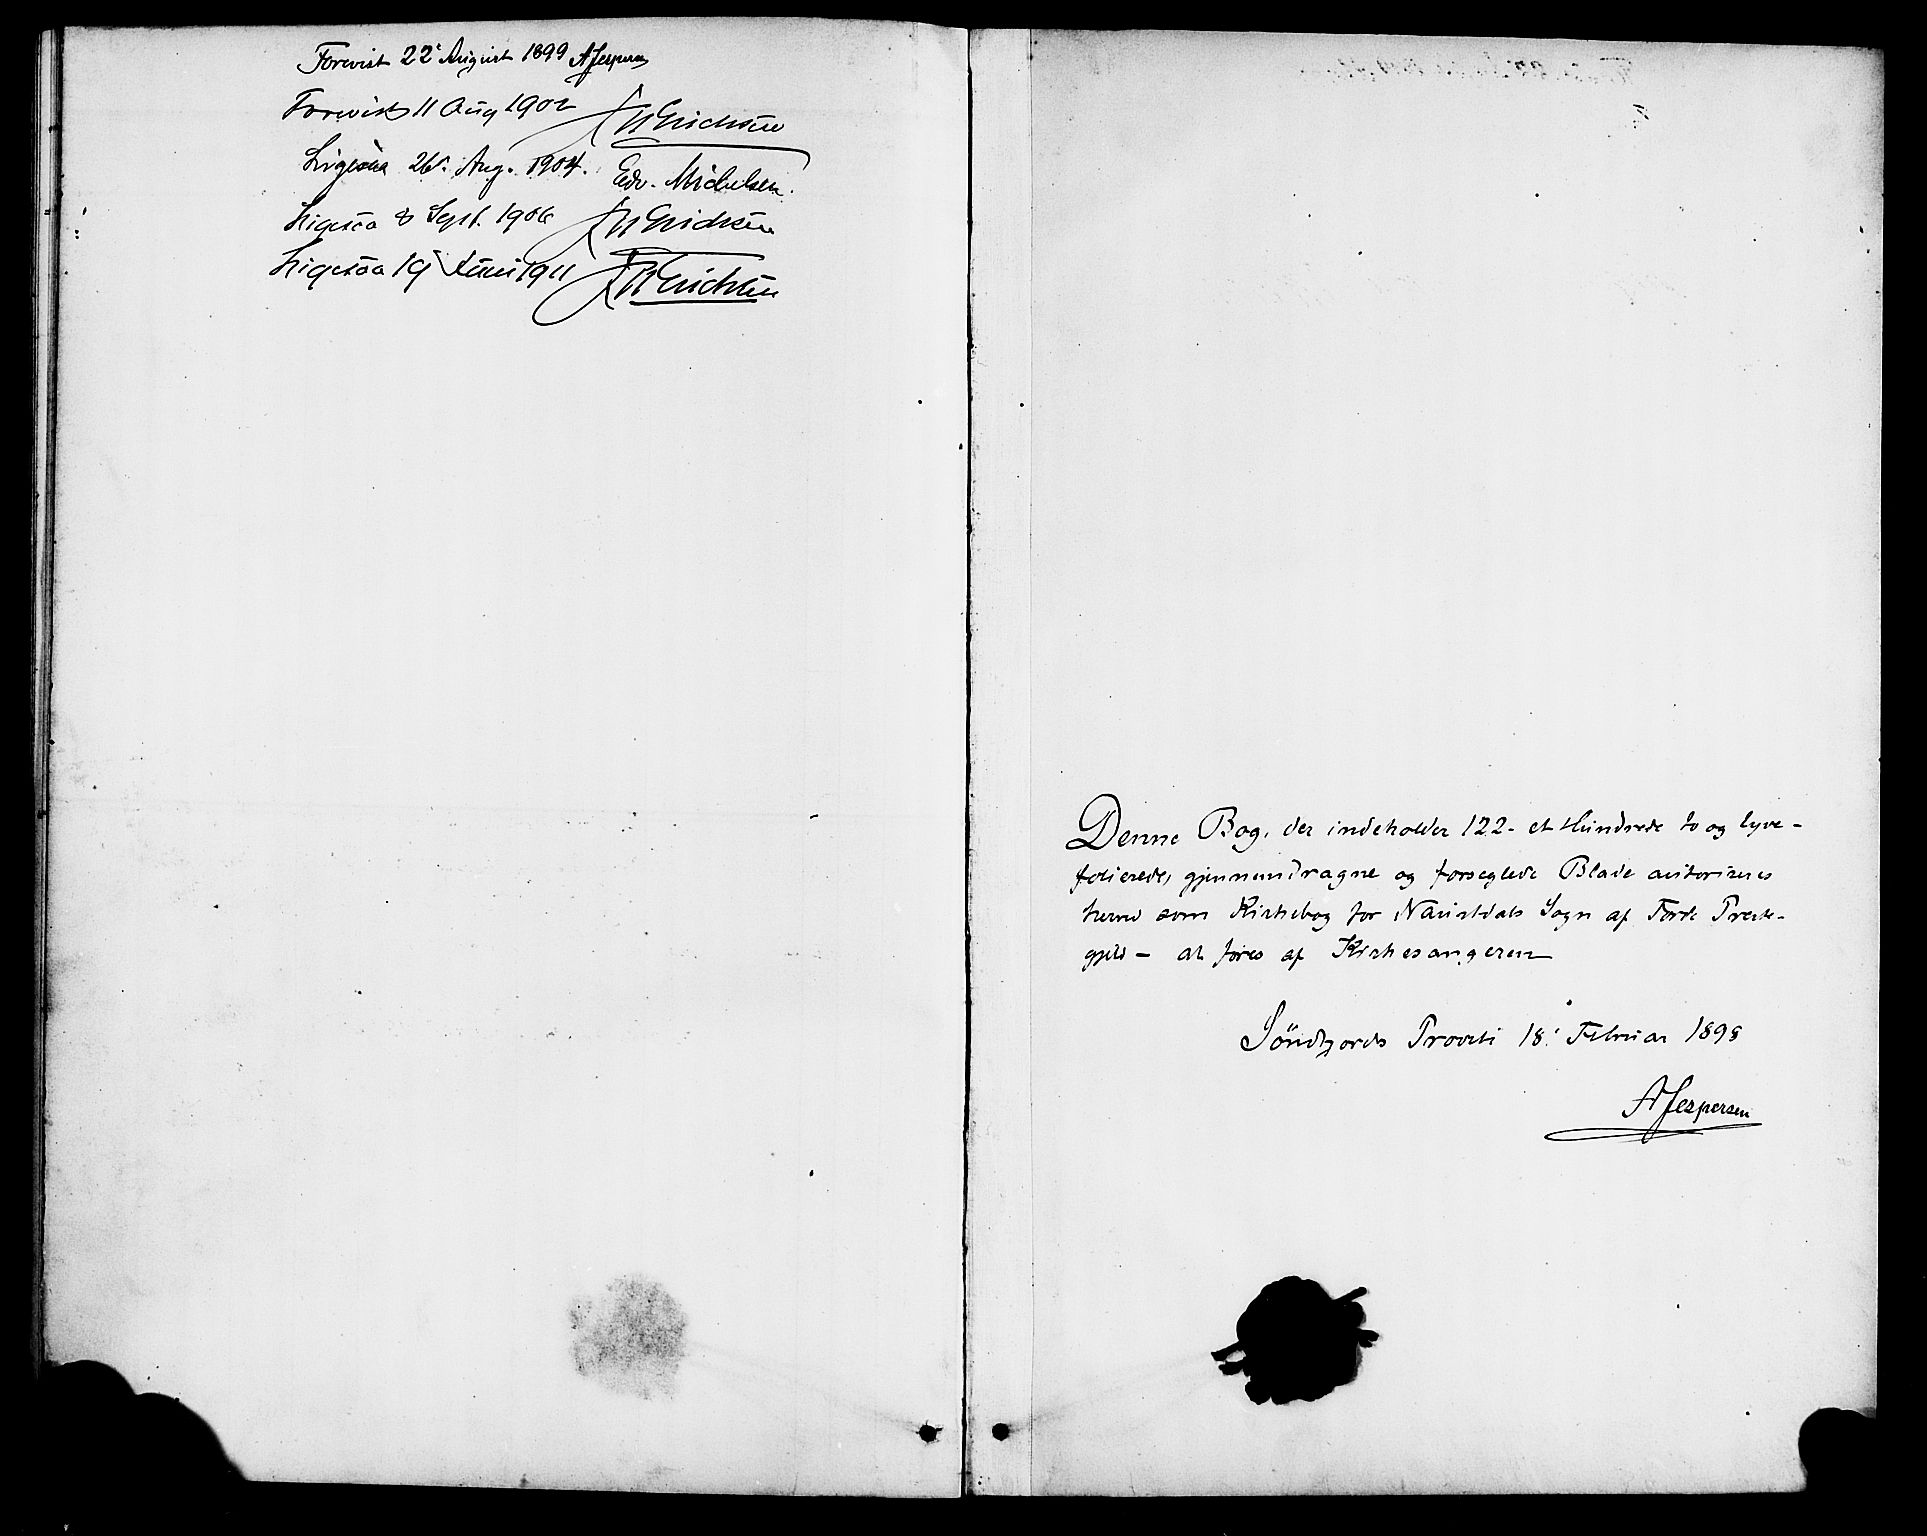 Forevist 22' August 1899 AJespersen
Forevist 11 Aug 1902 Erichsen
Ligesaa 26'. Aug. 1904. Edv. Michelsen.
Ligesaa 8 Sept. 1906 Erichsen
Ligesaa 19 Juni 1911 Erichsen
Denne Bog, der indeholder 122 - et Hundrede to og tyve -
folierede, gjennemdragne og forseglede Blade autoriseres
herved som Kirkebog for Naustdals Sogn af Førde Præste-
gjeld - at føres af Kirkesangeren
Søndfjords Provsti 18' Februar 1898
AJespersen